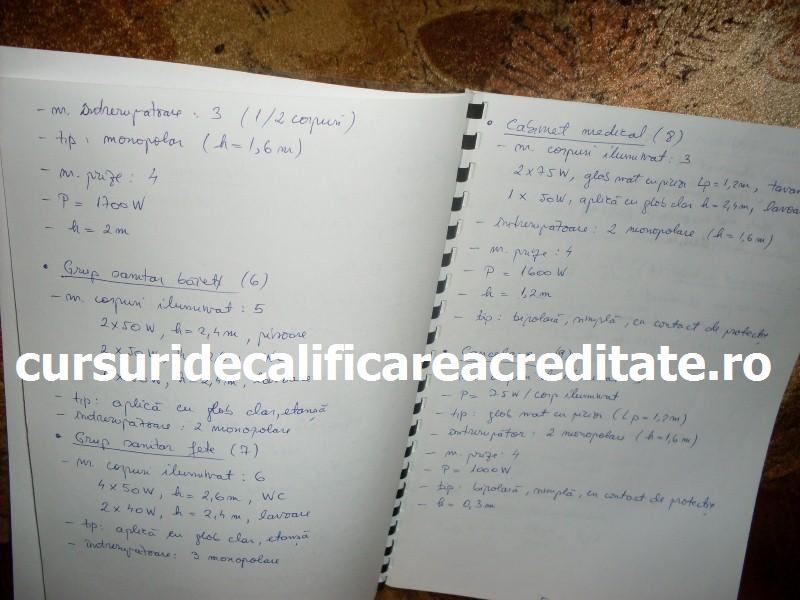 - nr. întrerupătoare : 3 (1/2 corpuri)
- tip : monopolar (h=1,6 m)
- nr. prize : 4
- P = 1700 W
- h = 2 m
• Grup sanitar băieți (6)
- nr. corpuri iluminat : 5
2x50W, h=2,4m, pisoare
h=2,4m, lavoare
- tip : aplică cu glob clar, etanșă
- întrerupătoare : 2 monopolare
• Grup sanitar fete (7)
- nr. corpuri iluminat : 6
4x50W, h=2,6m, WC
2x40W, h=2,4m, lavoare
- tip : aplică cu glob clar, etanșă
- întrerupătoare : 3 monopolare
• Cabinet medical (8)
- nr. corpuri iluminat : 3
2x75W, glob mat cu picior Lp=1,2m, tavan
1x 50W, aplică cu glob clar h=2,4m, lavoa
- întrerupătoare : 2 monopolare (h=1,6m)
- nr. prize : 4
- P = 1600 W
- h = 1,2 m
- tip : bipolară, simplă, cu contact de protecție
• (9)
- P = 75W / corp iluminat
- tip : glob mat cu picior (Lp=1,2m)
- întrerupător : 2 monopolare (h=1,6m)
- nr. prize : 4
- P = 1000 W
- tip : bipolară, simplă, cu contact de protecție
- h = 0,3 m
cursuridecalificareacreditate.ro